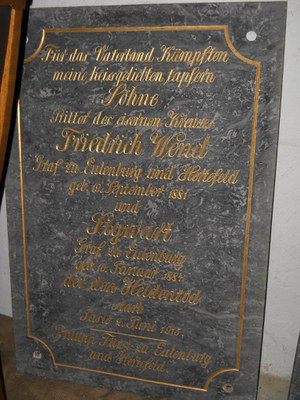 Für das Vaterland kämpften
meine heissgeliebten tapfern
Söhne
Ritter des eisernen Kreuzes
Friedrich Wend
Graf zu Eulenburg und Hertefeld
geb. 19. September 1881
und
Sigwart
Graf zu Eulenburg
geb. Januar 1884
der den Heldentod
starb
Jaslo 2. Juni 1915.
Philipp Fürst zu Eulenburg
und Hertefeld.